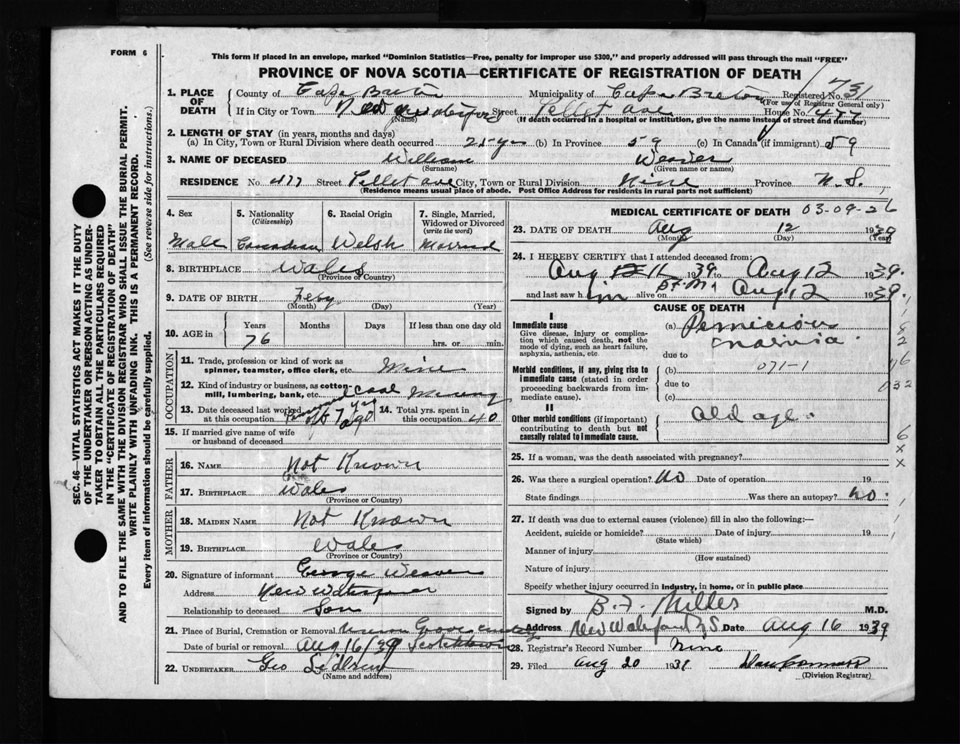 FORM 6
This form if placed in an envelope, marked "Dominion Statistics—Free, penalty for improper use $300," and properly addressed will pass through the mail "FREE"
PROVINCE OF NOVA SCOTIA—CERTIFICATE OF REGISTRATION OF DEATH
1. PLACE OF DEATH County of Cape Breton Municipality of Cape Breton Registered No. 31
(For use of Registrar General only)
If in City or Town New Waterford Street Pellet ave House No. 477
(Name) (If death occurred in a hospital or institution, give the name instead of street and number)
2. LENGTH OF STAY (in years, months and days)
(a) In City, Town or Rural Division where death occurred (b) In Province 59 (c) In Canada (if immigrant) 59
3. NAME OF DECEASED William Weaver
(Surname) (Given name or names)
RESIDENCE No. 477 Street Pellet ave City, Town or Rural Division Province N.S.
(Residence means usual place of abode. Post Office Address for residents in rural parts not sufficient)
4. Sex 5. Nationality 6. Racial Origin 7. Single, Married,
(Citizenship) Widowed or Divorced
(write the word)
Male Canadian Welsh Married
8. BIRTHPLACE Wales
(Province or Country)
9. DATE OF BIRTH Feby
(Month) (Day) (Year)
10. AGE in Years Months Days If less than one day old
76 hrs. or min.
OCCUPATION
11. Trade, profession or kind of work as
spinner, teamster, office clerk, etc. Mine
12. Kind of industry or business, as cotton-
mill, lumbering, bank, etc. Coal Mining
13. Date deceased last worked
at this occupation 7 yrs ago 14. Total yrs. spent in
this occupation 40
15. If married give name of wife
or husband of deceased
FATHER
16. NAME Not Known
17. BIRTHPLACE Wales
(Province or Country)
MOTHER
18. MAIDEN NAME Not Known
19. BIRTHPLACE Wales
(Province or Country)
20. Signature of informant George Weaver
Address New Waterford
Relationship to deceased Son
21. Place of Burial, Cremation or Removal Union Grove cemetery
Date of burial or removal Aug 16/39 Scotchtown
22. UNDERTAKER Geo
(Name and address)
MEDICAL CERTIFICATE OF DEATH 03-09-26
23. DATE OF DEATH Aug 12 1939
(Month) (Day) (Year)
24. I HEREBY CERTIFY that I attended deceased from:
Aug 11 1939 to Aug 12 1939.
and last saw him alive on Aug 12 1939.
CAUSE OF DEATH
I
Immediate cause
Give disease, injury or complica-
tion which caused death, not the
mode of dying, such as heart failure,
asphyxia, asthenia, etc.
(a) Pernicious anaemia
due to
Morbid conditions, if any, giving rise to
immediate cause (stated in order
proceeding backwards from im-
mediate cause).
(b) 071-1
due to
(c)
II
Other morbid conditions (if important)
contributing to death but not
causally related to immediate cause.
Old age.
25. If a woman, was the death associated with pregnancy?
26. Was there a surgical operation? No Date of operation 19
State findings Was there an autopsy? No.
27. If death was due to external causes (violence) fill in also the following:—
Accident, suicide or homicide? Date of injury 19
(State which)
Manner of injury
(How sustained)
Nature of injury
Specify whether injury occurred in industry, in home, or in public place
Signed by B. F. Miller M.D.
Address New Waterford N.S. Date Aug 16 1939
28. Registrar's Record Number
29. Filed Aug 20 193
(Division Registrar)
SEC. 46—VITAL STATISTICS ACT MAKES IT THE DUTY
OF THE UNDERTAKER OR PERSON ACTING AS UNDER-
TAKER TO OBTAIN ALL THE PARTICULARS REQUIRED
IN THE "CERTIFICATE OF REGISTRATION OF DEATH"
AND TO FILE THE SAME WITH THE DIVISION REGISTRAR WHO SHALL ISSUE THE BURIAL PERMIT.
WRITE PLAINLY WITH UNFADING INK. THIS IS A PERMANENT RECORD.
Every item of information should be carefully supplied. (See reverse side for instructions.)